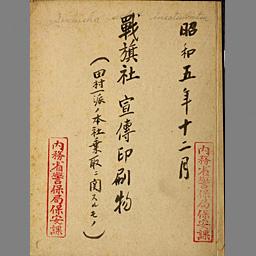 昭和五年十二月
戰旗社 宣傳印刷物
(田村一派ノ本社乗取ニ関スルモノ)
内務省警保局保安課
内務省警保局保安課